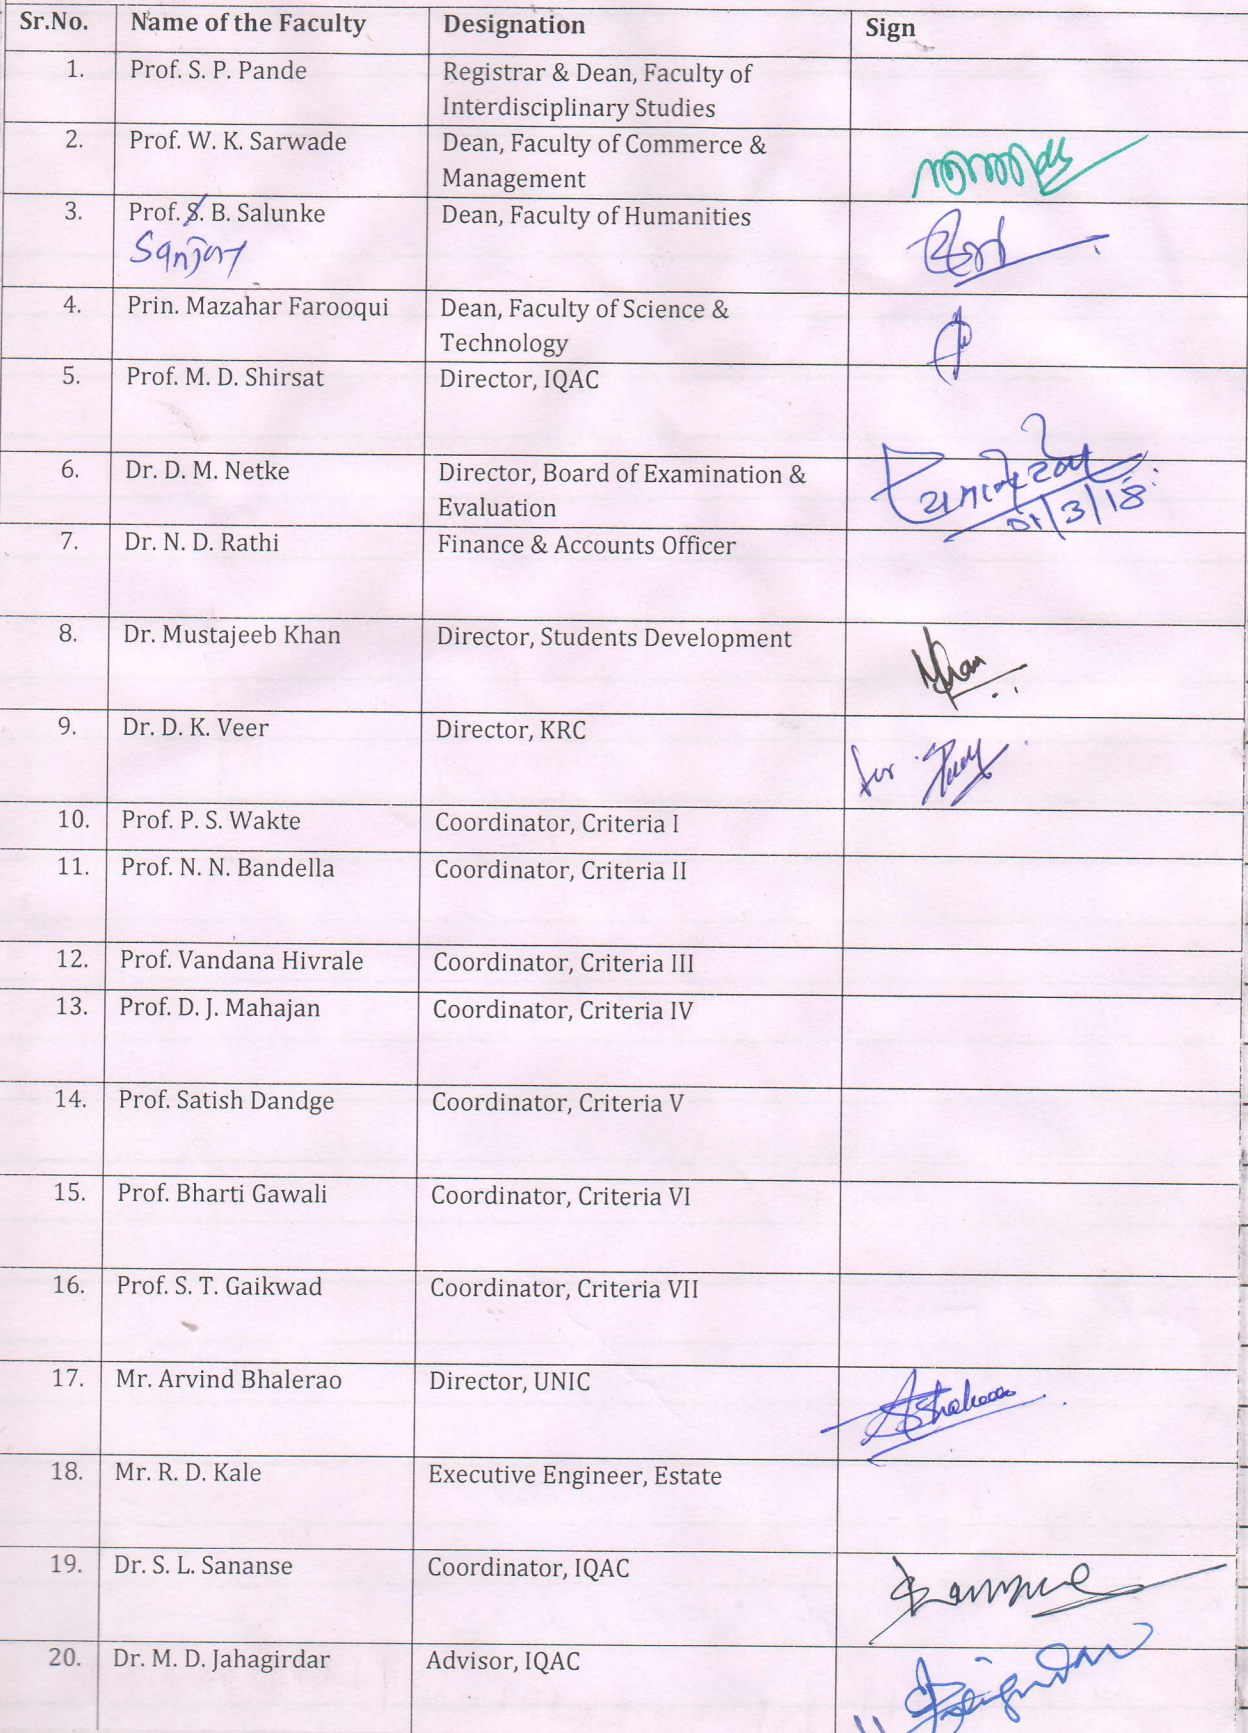 Sr.No. Name of the Faculty Designation Sign
1. Prof. S. P. Pande Registrar & Dean, Faculty of
Interdisciplinary Studies
2. Prof. W. K. Sarwade Dean, Faculty of Commerce &
Management
3. Prof. S. B. Salunke Dean, Faculty of Humanities
Sanjay
4. Prin. Mazahar Farooqui Dean, Faculty of Science &
Technology
5. Prof. M. D. Shirsat Director, IQAC
6. Dr. D. M. Netke Director, Board of Examination &
Evaluation
01/3/18
7. Dr. N. D. Rathi Finance & Accounts Officer
8. Dr. Mustajeeb Khan Director, Students Development
Khan
9. Dr. D. K. Veer Director, KRC
for
10. Prof. P. S. Wakte Coordinator, Criteria I
11. Prof. N. N. Bandella Coordinator, Criteria II
12. Prof. Vandana Hivrale Coordinator, Criteria III
13. Prof. D. J. Mahajan Coordinator, Criteria IV
14. Prof. Satish Dandge Coordinator, Criteria V
15. Prof. Bharti Gawali Coordinator, Criteria VI
16. Prof. S. T. Gaikwad Coordinator, Criteria VII
17. Mr. Arvind Bhalerao Director, UNIC
18. Mr. R. D. Kale Executive Engineer, Estate
19. Dr. S. L. Sananse Coordinator, IQAC
20. Dr. M. D. Jahagirdar Advisor, IQAC